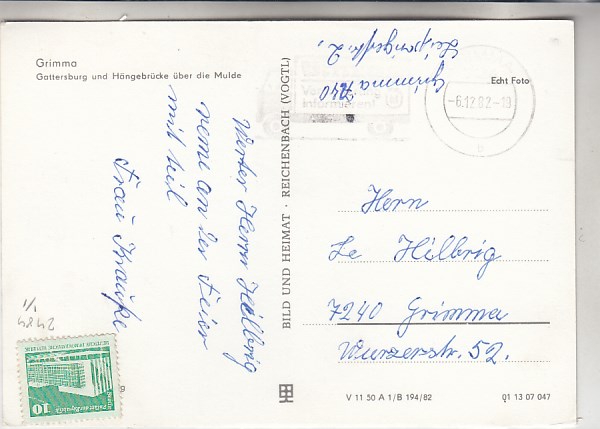 Grimma
Gattersburg und Hängebrücke über die Mulde
Werter Herrn Hilbrig
neme an der Feier
mit teil
Frau Krauße
1/1
4842
10
BILD UND HEIMAT · REICHENBACH (VOGTL)
Leipzigerstr. 2,
Grimma 7240
Echt Foto
-6.12.82-19
Herrn
Le Hilbrig
7240 Grimma
Wurzerstr. 52.
V 11 50 A 1/B 194/82
01 13 07 047